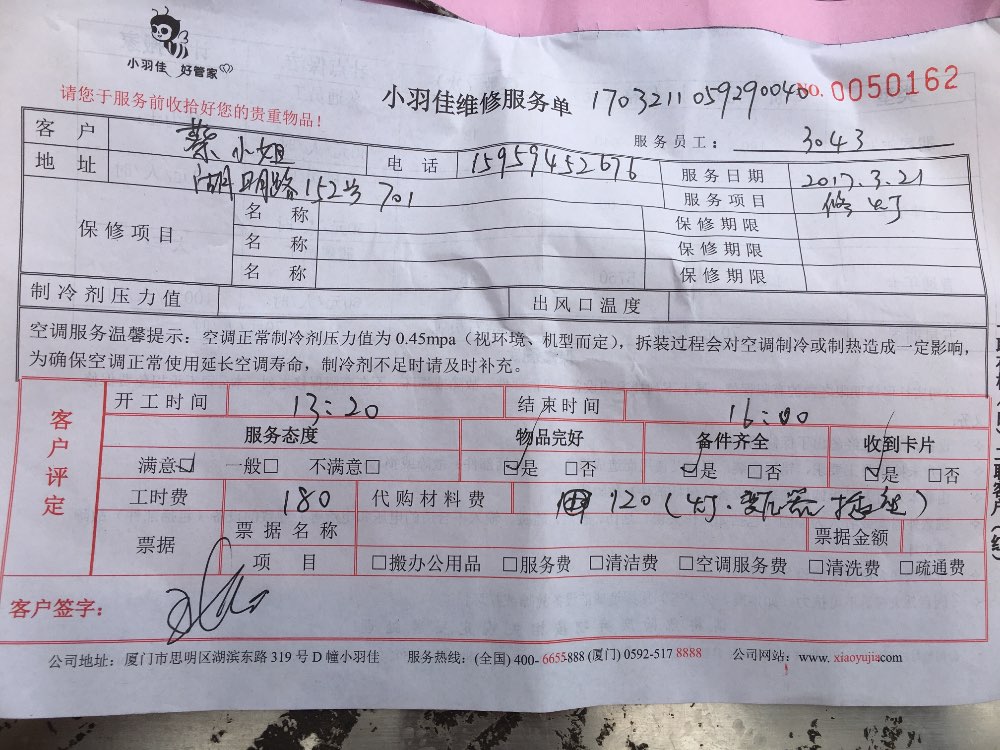 小羽佳 好管家
请您于服务前收拾好您的贵重物品！
小羽佳维修服务单 1703211059290040 NO. 0050162
服务员工： 3043
客户 蔡小姐 电话 15959452676 服务日期 2017.3.21
地址 湖明路152号701 服务项目 修灯
保修项目
名称 保修期限
名称 保修期限
名称 保修期限
制冷剂压力值 出风口温度
空调服务温馨提示：空调正常制冷剂压力值为 0.45mpa（视环境、机型而定），拆装过程会对空调制冷或制热造成一定影响，
为确保空调正常使用延长空调寿命，制冷剂不足时请及时补充。
客户评定
开工时间 13:20 结束时间 16:00
服务态度 物品完好 备件齐全 收到卡片
满意☑ 一般□ 不满意□ ☑是 □否 ☑是 □否 ☑是 □否
工时费 180 代购材料费 120（灯.
票据 票据名称 票据金额
项目 □搬办公用品 □服务费 □清洁费 □空调服务费 □清洗费 □疏通费
客户签字：
公司地址：厦门市思明区湖滨东路 319 号 D 幢小羽佳 服务热线：(全国) 400-6655-888 (厦门) 0592-517 8888 公司网站：www. xiaoyujia.com